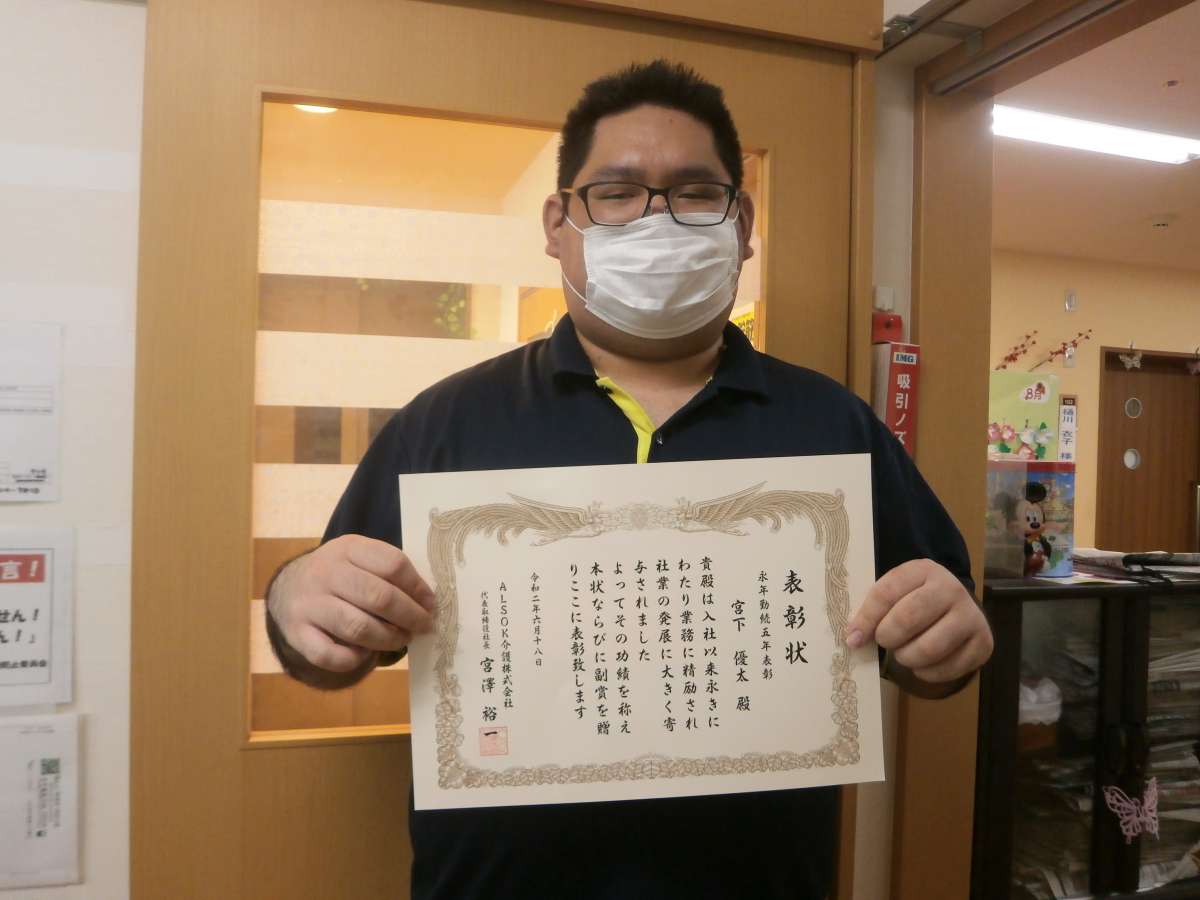 表彰状
永年勤続五年表彰
宮下 優太 殿
貴殿は入社以来永きに
わたり業務に精励され
社業の発展に大きく寄
与されました
よってその功績を称え
本状ならびに副賞を贈
りここに表彰致します
令和二年六月十八日
ALSOK介護株式会社
代表取締役社長 宮澤 裕一
IMG
吸引ノズ
8月
桶川
言!
せん!
ん!」